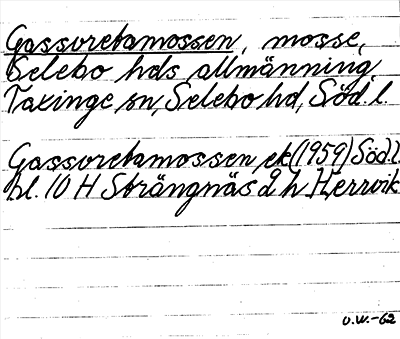 Gassvretamossen, mosse,
Selebo hds allmänning,
Taxinge sn, Selebo hd, Söd. l.
Gassvretamossen ek (1959) Söd. l.
bl. 10 H Strängnäs 2 h Herrvik
U.W.-62